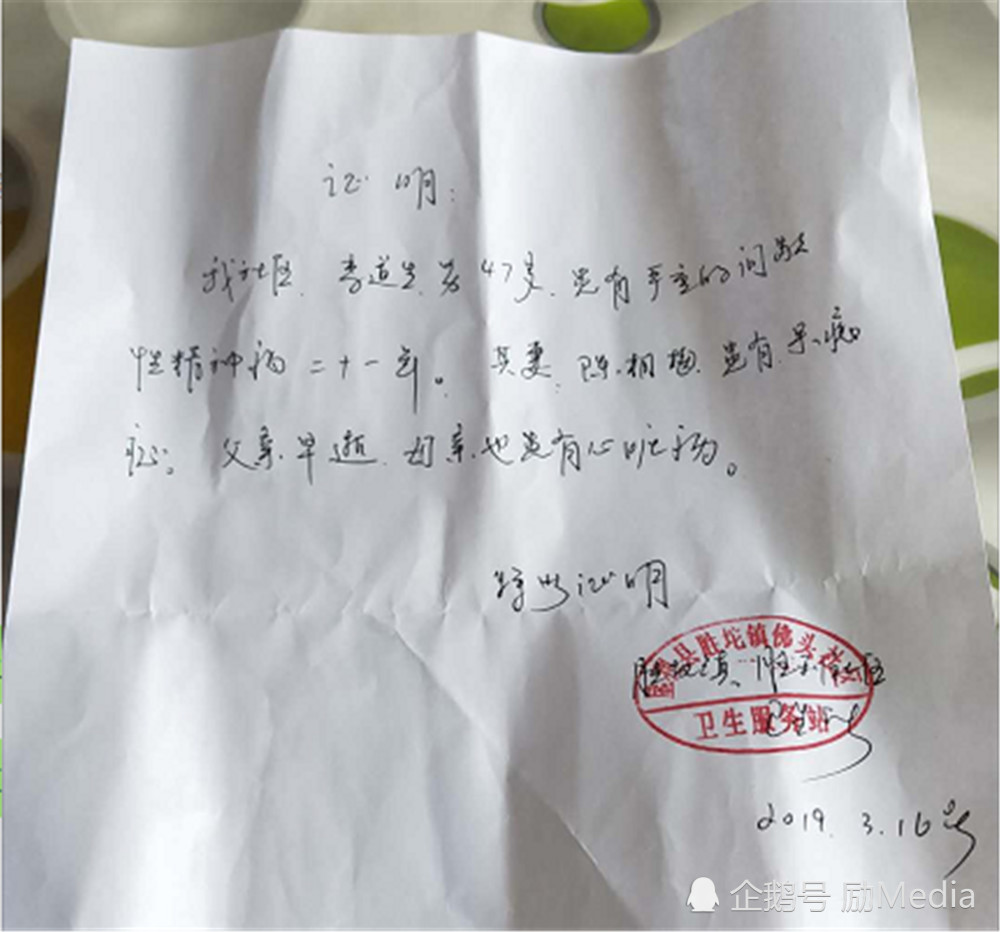 证明:
我社区、李道先、男47岁、患有严重的间歇
性精神病二十一年。其妻、陈相梅、患有呆痴
症。父亲早逝、母亲也患有心脏病。
特此证明
县胜坨镇佛头
胜坨镇、佛头社区
卫生服务站
2019.3.16号
企鹅号 励Media